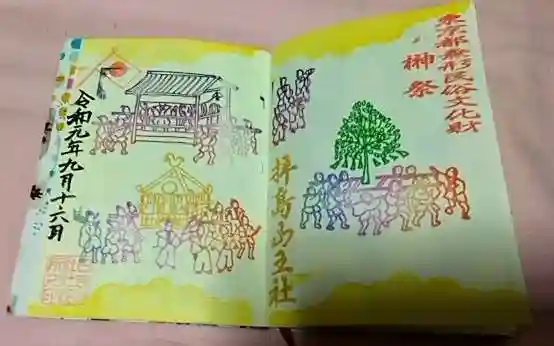 東京都無形民俗文化財
榊祭
拝島山王社
令和元年九月十六日